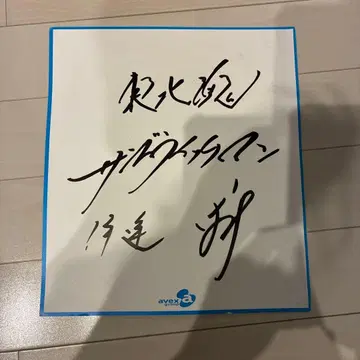 東北魂
サンドウィッチマン
伊達
avex